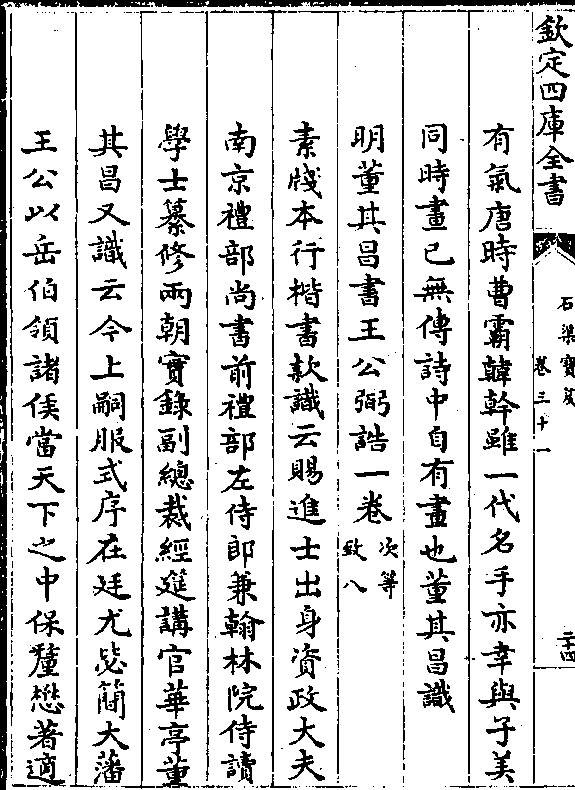 欽定四庫全書
石渠寶笈
卷三十一
二十四
有氣唐時曹霸韓幹雖一代名手亦幸與子美
同時畫已無傳詩中自有畫也董其昌識
明董其昌書王公弼誥一卷次等
致八
素牋本行楷書款識云賜進士出身資政大夫
南京禮部尚書前禮部左侍郎兼翰林院侍讀
學士纂修兩朝實錄副總裁經筵講官華亭董
其昌又識云今上嗣服式序在廷尤毖簡大藩
王公以岳伯領諸侯當天下之中保釐懋著適